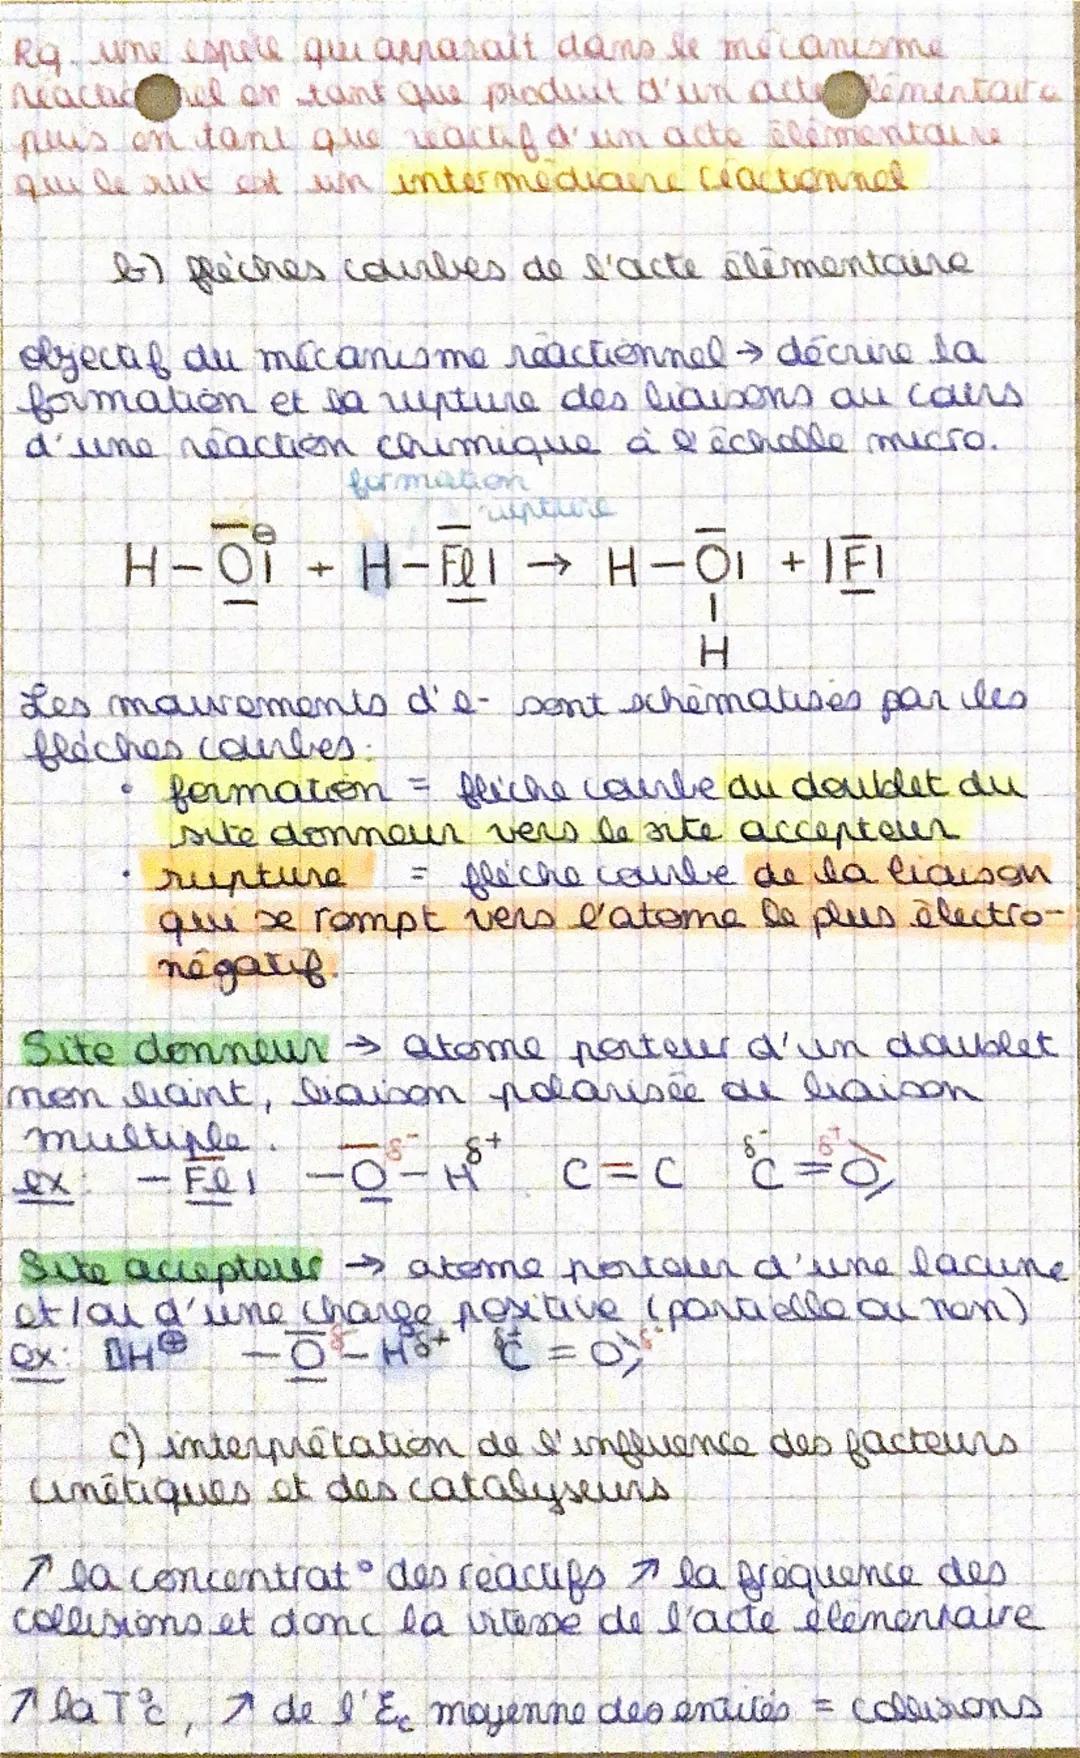 Rq. une espèce qui apparaît dans le mécanisme
réactionnel en tant que produit d'un acte élémentaire
puis en tant que réactif d'un acte élémentaire
qui le suit est un intermédiaire réactionnel
b) flèches courbes de l'acte élémentaire
objectif du mécanisme réactionnel → décrire la
formation et la rupture des liaisons au cours
d'une réaction chimique à l'échelle micro.
formation
rupture
H - O| ⊖ + H - Fl| → H - O| + |F|
|
H
Les mouvements d'e- sont schématisés par les
flèches courbes:
• formation = flèche courbe du doublet du
site donneur vers le site accepteur
• rupture = flèche courbe de la liaison
qui se rompt vers l'atome le plus électro-
négatif.
Site donneur → atome porteur d'un doublet
non liant, liaison polarisée ou liaison
multiple.
ex: - Fl| - O δ- - H δ+ C = C δ- C = O δ+
Site accepteur → atome porteur d'une lacune
et/ou d'une charge positive (partielle ou non)
ex: □H⊕ - O δ- - H δ+ δ+ C = O δ-
c) interprétation de l'influence des facteurs
cinétiques et des catalyseurs
↗ la concentrat° des réactifs ↗ la fréquence des
collisions et donc la vitesse de l'acte élémentaire
↗ la T°c, ↗ de l'Ec moyenne des entités = collisions